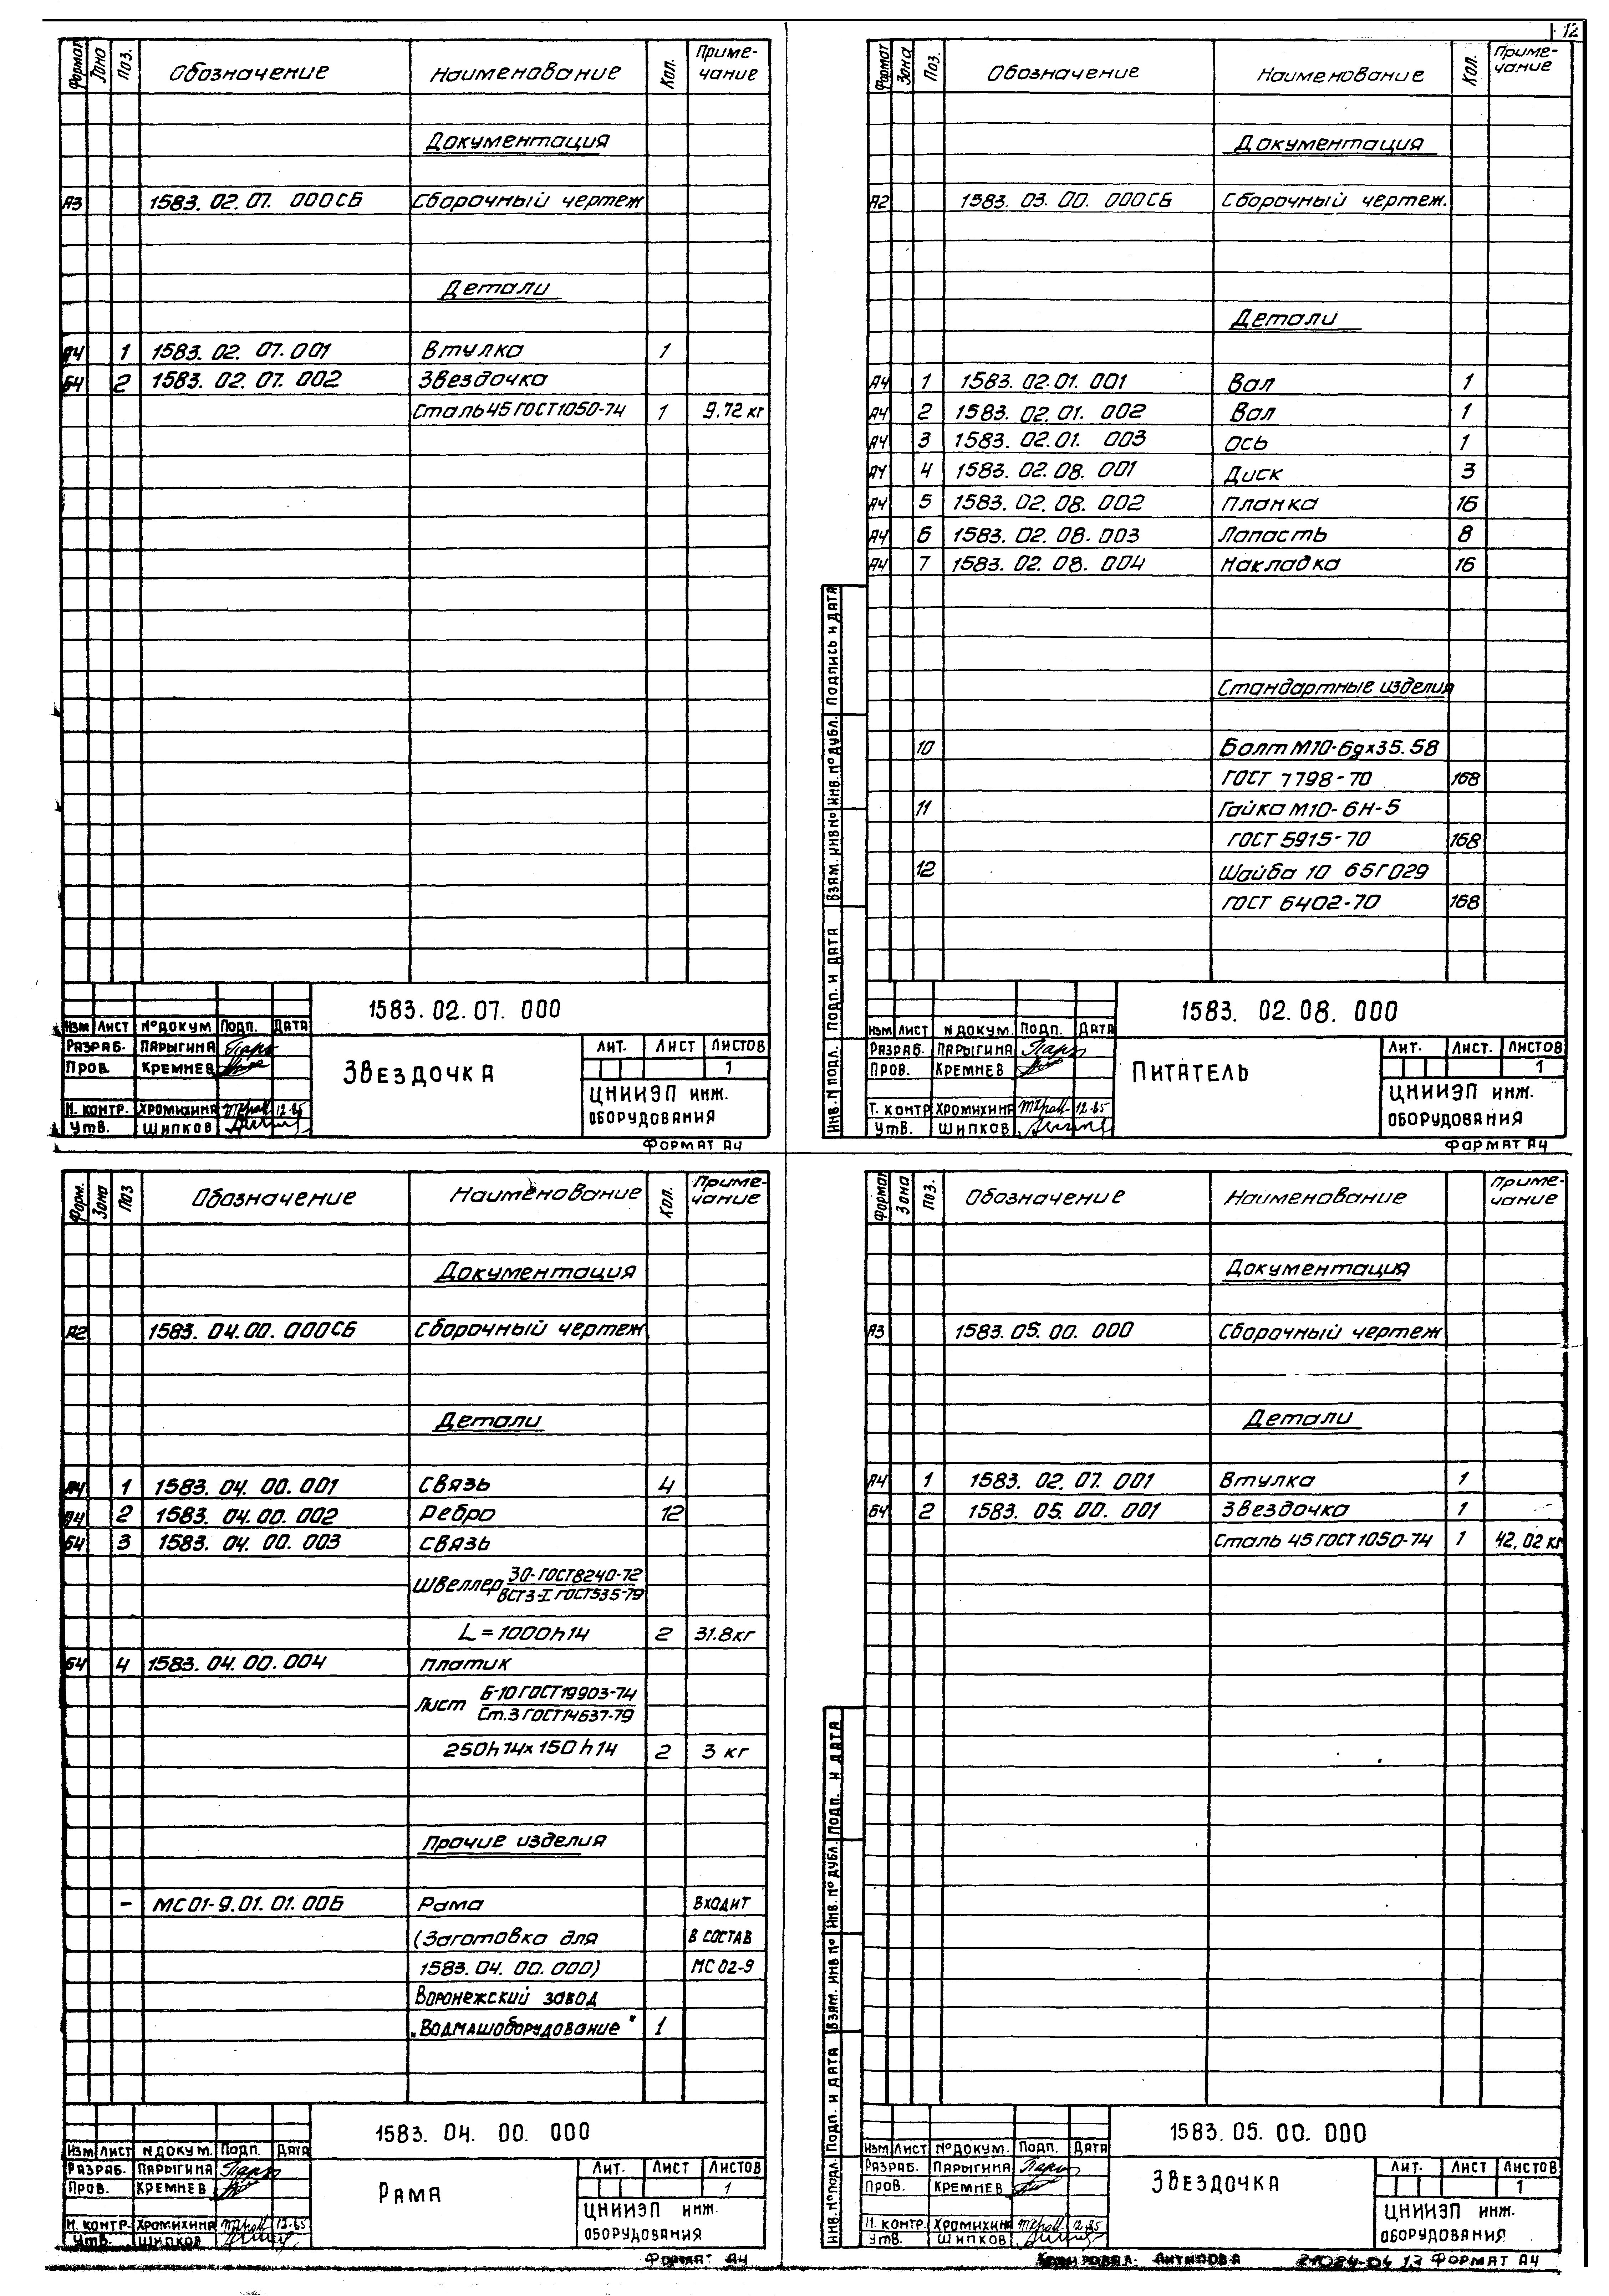 12
Формат Зона Поз. Обозначение Наименование Кол. Приме-
чание
Документация
А3 1583. 02. 07. 000СБ Сборочный чертеж
Детали
А4 1 1583. 02. 07. 001 Втулка 1
БЧ 2 1583. 02. 07. 002 Звездочка
Сталь 45 ГОСТ 1050-74 1 9,72 кг
1583. 02. 07. 000
Изм Лист № докум Подп. Дата
Разраб. Парыгина
Пров. Кремнев
Н. контр. Хромихина 12.85
Утв. Шипков
Звездочка
Лит. Лист Листов
1
ЦНИИЭП инж.
оборудования
Формат А4
Формат Зона Поз. Обозначение Наименование Кол. Приме-
чание
Документация
А2 1583. 03. 00. 000СБ Сборочный чертеж.
Детали
А4 1 1583. 02. 01. 001 Вал 1
А4 2 1583. 02. 01. 002 Вал 1
А4 3 1583. 02. 01. 003 Ось 1
А4 4 1583. 02. 08. 001 Диск 3
А4 5 1583. 02. 08. 002 Планка 16
А4 6 1583. 02. 08. 003 Лопасть 8
А4 7 1583. 02. 08. 004 Накладка 16
Стандартные изделия
10 Болт М10-6gх35.58
ГОСТ 7798-70 168
11 Гайка М10-6Н-5
ГОСТ 5915-70 168
12 Шайба 10 65Г029
ГОСТ 6402-70 168
Инв. N подл. Подп. и дата Взам. инв № Инв. № дубл. Подпись и дата
1583. 02. 08. 000
Изм Лист N докум. Подп. Дата
Разраб. Парыгина
Пров. Кремнев
Т. контр Хромихина 12.85
Утв. Шипков
Питатель
Лит. Лист. Листов
1
ЦНИИЭП инж.
оборудования
Формат А4
Форм. Зона Поз Обозначение Наименование Кол. Приме-
чание
Документация
А2 1583. 04. 00. 000СБ Сборочный чертеж
Детали
А4 1 1583. 04. 00. 001 Связь 4
А4 2 1583. 04. 00. 002 Ребро 12
БЧ 3 1583. 04. 00. 003 Связь
Швеллер 30-ГОСТ8240-72
ВСт3-I ГОСТ535-79
L = 1000h14 2 31.8кг
БЧ 4 1583. 04. 00. 004 Платик
Лист Б-10 ГОСТ19903-74
Ст.3 ГОСТ14637-79
250h14х150h14 2 3 кг
Прочие изделия
– МС01-9.01.01.00Б Рама входит
(Заготовка для в состав
1583. 04. 00. 000) МС 02-9
Воронежский завод
„Водмашоборудование" 1
1583. 04. 00. 000
Изм Лист N докум. Подп. Дата
Разраб. Парыгина
Пров. Кремнев
Н. контр. Хромихина 12.85
Утв. Шипков
Рама
Лит. Лист Листов
1
ЦНИИЭП инж.
оборудования
Формат А4
Формат Зона Поз. Обозначение Наименование Приме-
чание
Документация
А3 1583. 05. 00. 000 Сборочный чертеж
Детали
А4 1 1583. 02. 07. 001 Втулка 1
БЧ 2 1583. 05. 00. 001 Звездочка 1
Сталь 45 ГОСТ 1050-74 1 42,02 кг
Инв. № подл. Подп. и дата Взам. инв № Инв. № дубл. Подп. и дата
1583. 05. 00. 000
Изм Лист № докум. Подп. Дата
Разраб. Парыгина
Пров. Кремнев
Н. контр. Хромихина 12.85
Утв. Шипков
Звездочка
Лит. Лист Листов
1
ЦНИИЭП инж.
оборудования
Копировал: Антипова 21084-04 13 Формат А4